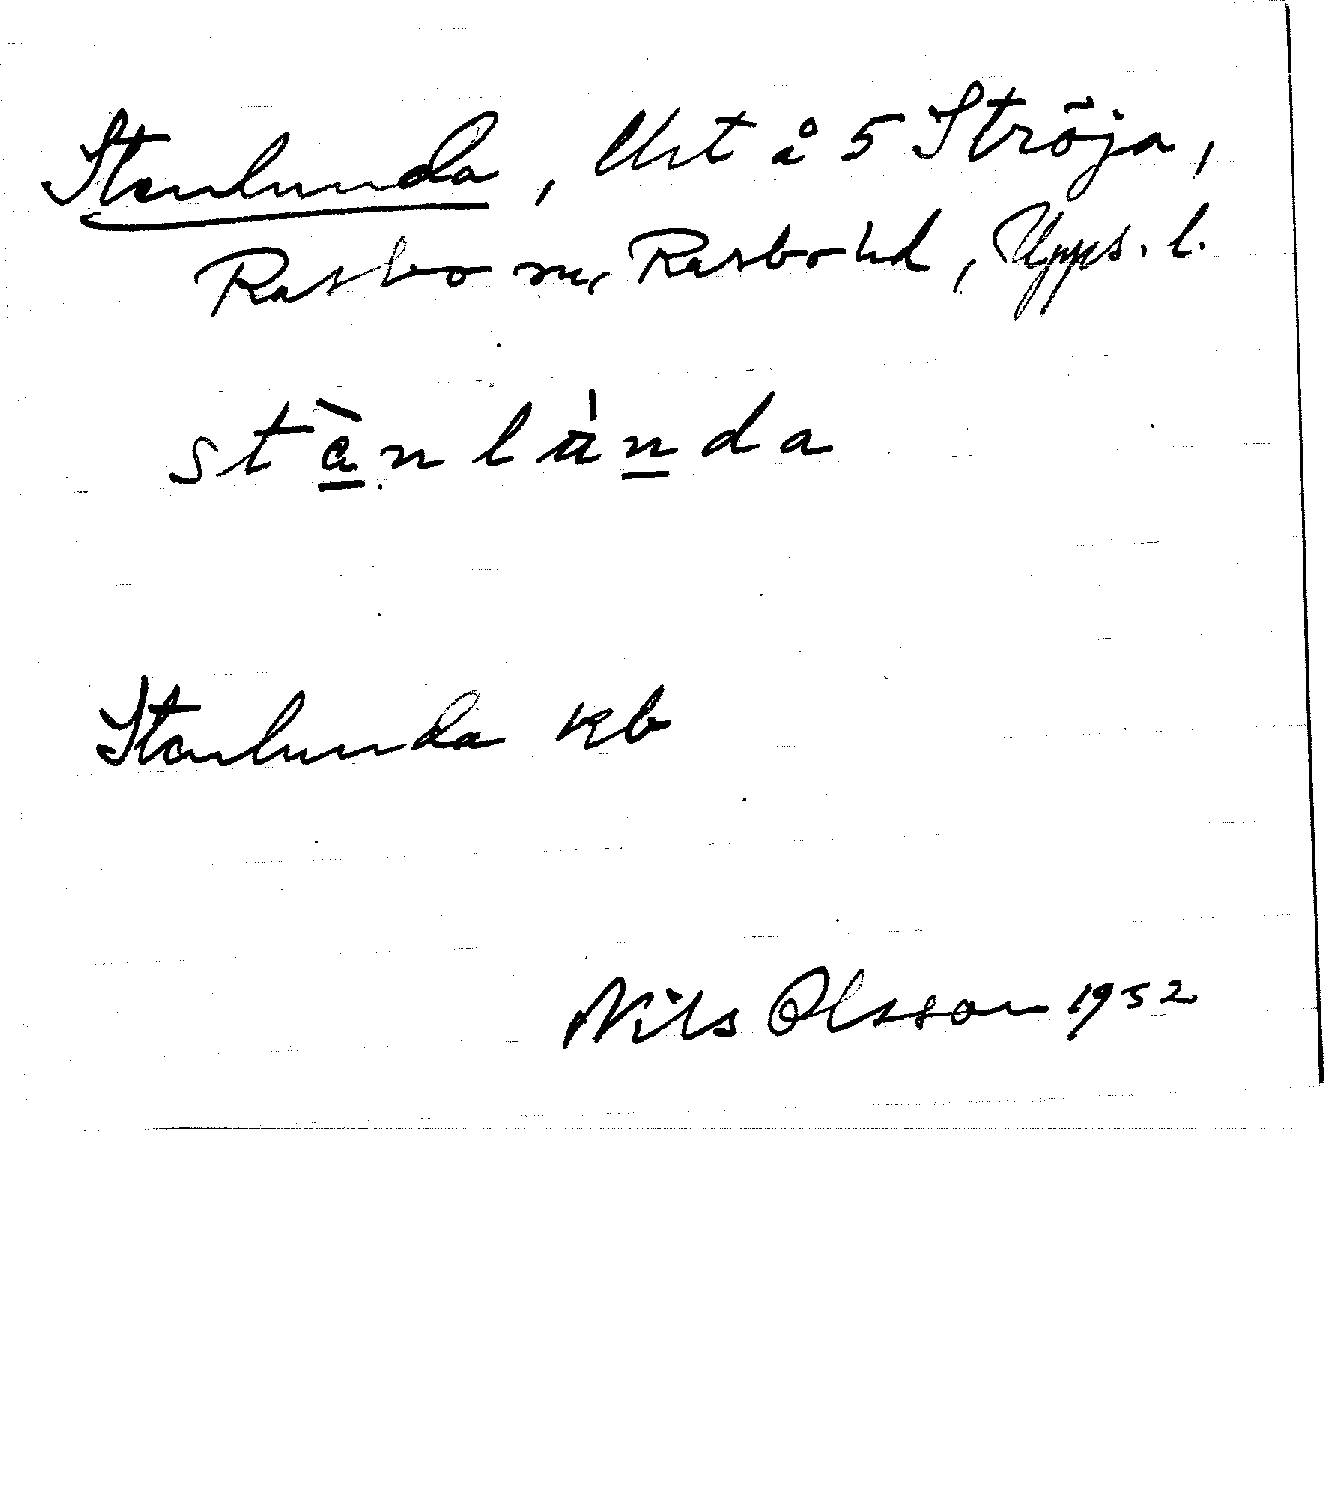 Stenlunda, Urt å 5 Ströja,
Rasbo sn, Rasbo hd, Upps. l.
stànlùnda
Stenlunda kb
Nils Olsson 1952